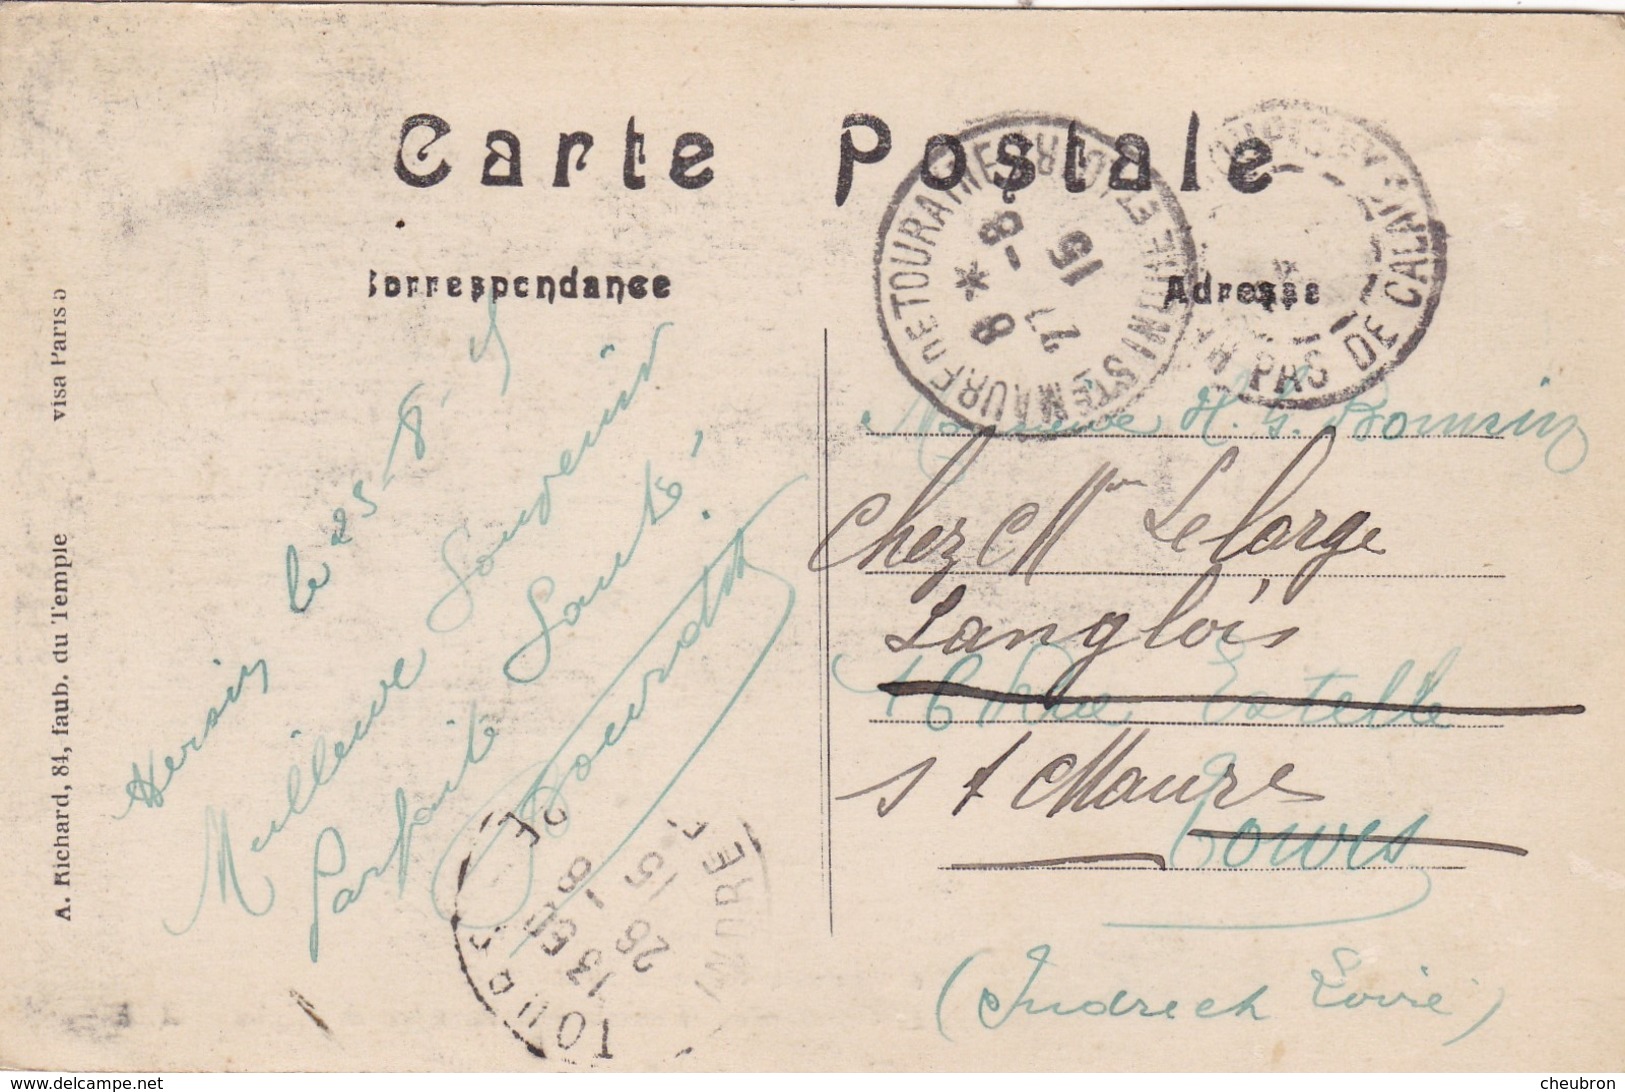 Carte Postale
Correspondance
Adresse
A. Richard, 84, faub. du Temple
visa Paris 5
Hersin le 25-8-15
Meilleure Souvenir
Parfaite Santé
H. G.
Chez Mme Lelarge
Langlois
16 Rue Estelle
St Maure
Tours
(Indre et Loire)
STE MAURE DE TOURAINE INDRE ET LOIRE
8 * 27 -8 15
PAS DE CALAIS
TOURS
13 50
26 -8 15
www.delcampe.net
cheubron